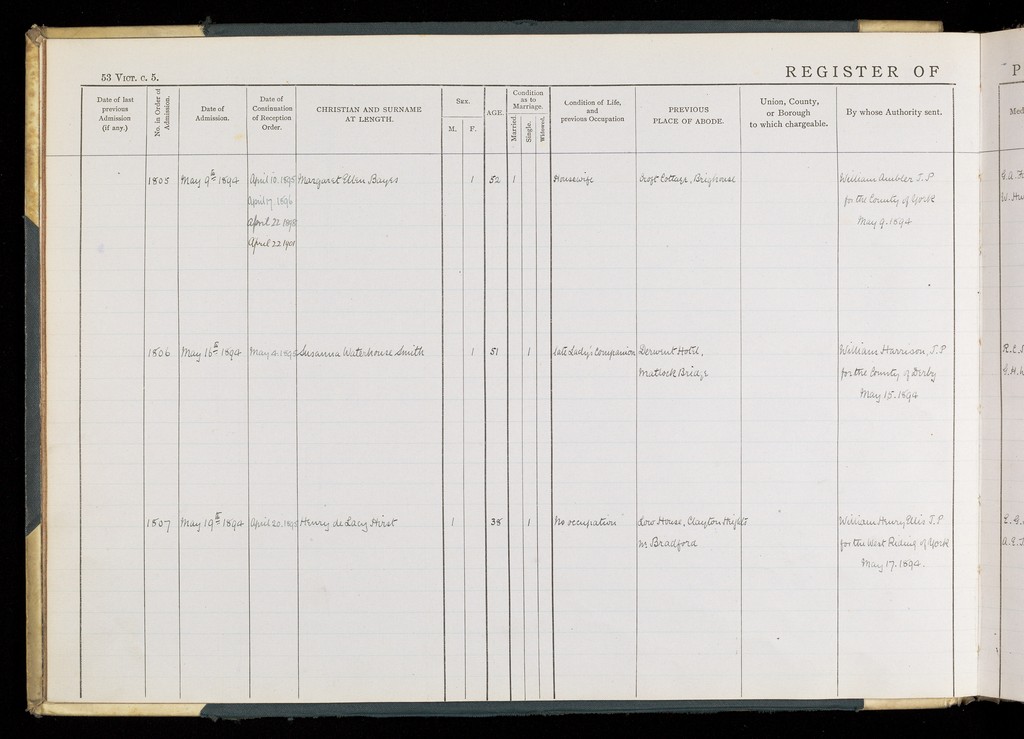 53 VICT. c. 5.
REGISTER OF
P
Date of last previous Admission (if any.)
No. in Order of Admission.
Date of Admission.
Date of Continuation of Reception Order.
CHRISTIAN AND SURNAME AT LENGTH.
SEX.
M.
F.
AGE.
Condition as to Marriage.
Married.
Single.
Widowed.
Condition of Life, and previous Occupation
PREVIOUS PLACE OF ABODE.
Union, County, or Borough to which chargeable.
By whose Authority sent.
Med
1805 May 9th 1894 April 10. 1895 Margaret Ellen Bayes 1 52 1 Housewife Croft Cottage, Brighouse William Ambler J.P
April 17. 1896 for the County of York
April 22 1898 May 9. 1894
April 22 1901
1806 May 16th 1894 May 4. 1895 Susanna Waterhouse Smith 1 51 1 late Lady's Companion Derwent Hotel, William Harrison, J.P
Matlock Bridge for the County of Derby
May 15. 1894
1807 May 19th 1894 April 20. 1895 Henry de Lacy Hirst 1 38 1 No occupation Low House, Clayton Heights William Henry Ellis J.P
nr Bradford for the West Riding of York
May 17. 1894.